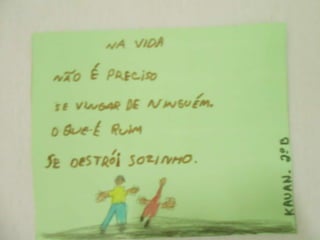 NA VIDA
NÃO É PRECISO
SE VINGAR DE NINGUÉM.
O QUE É RUIM
SE DESTRÓI SOZINHO.
KAUAN. 2ºB